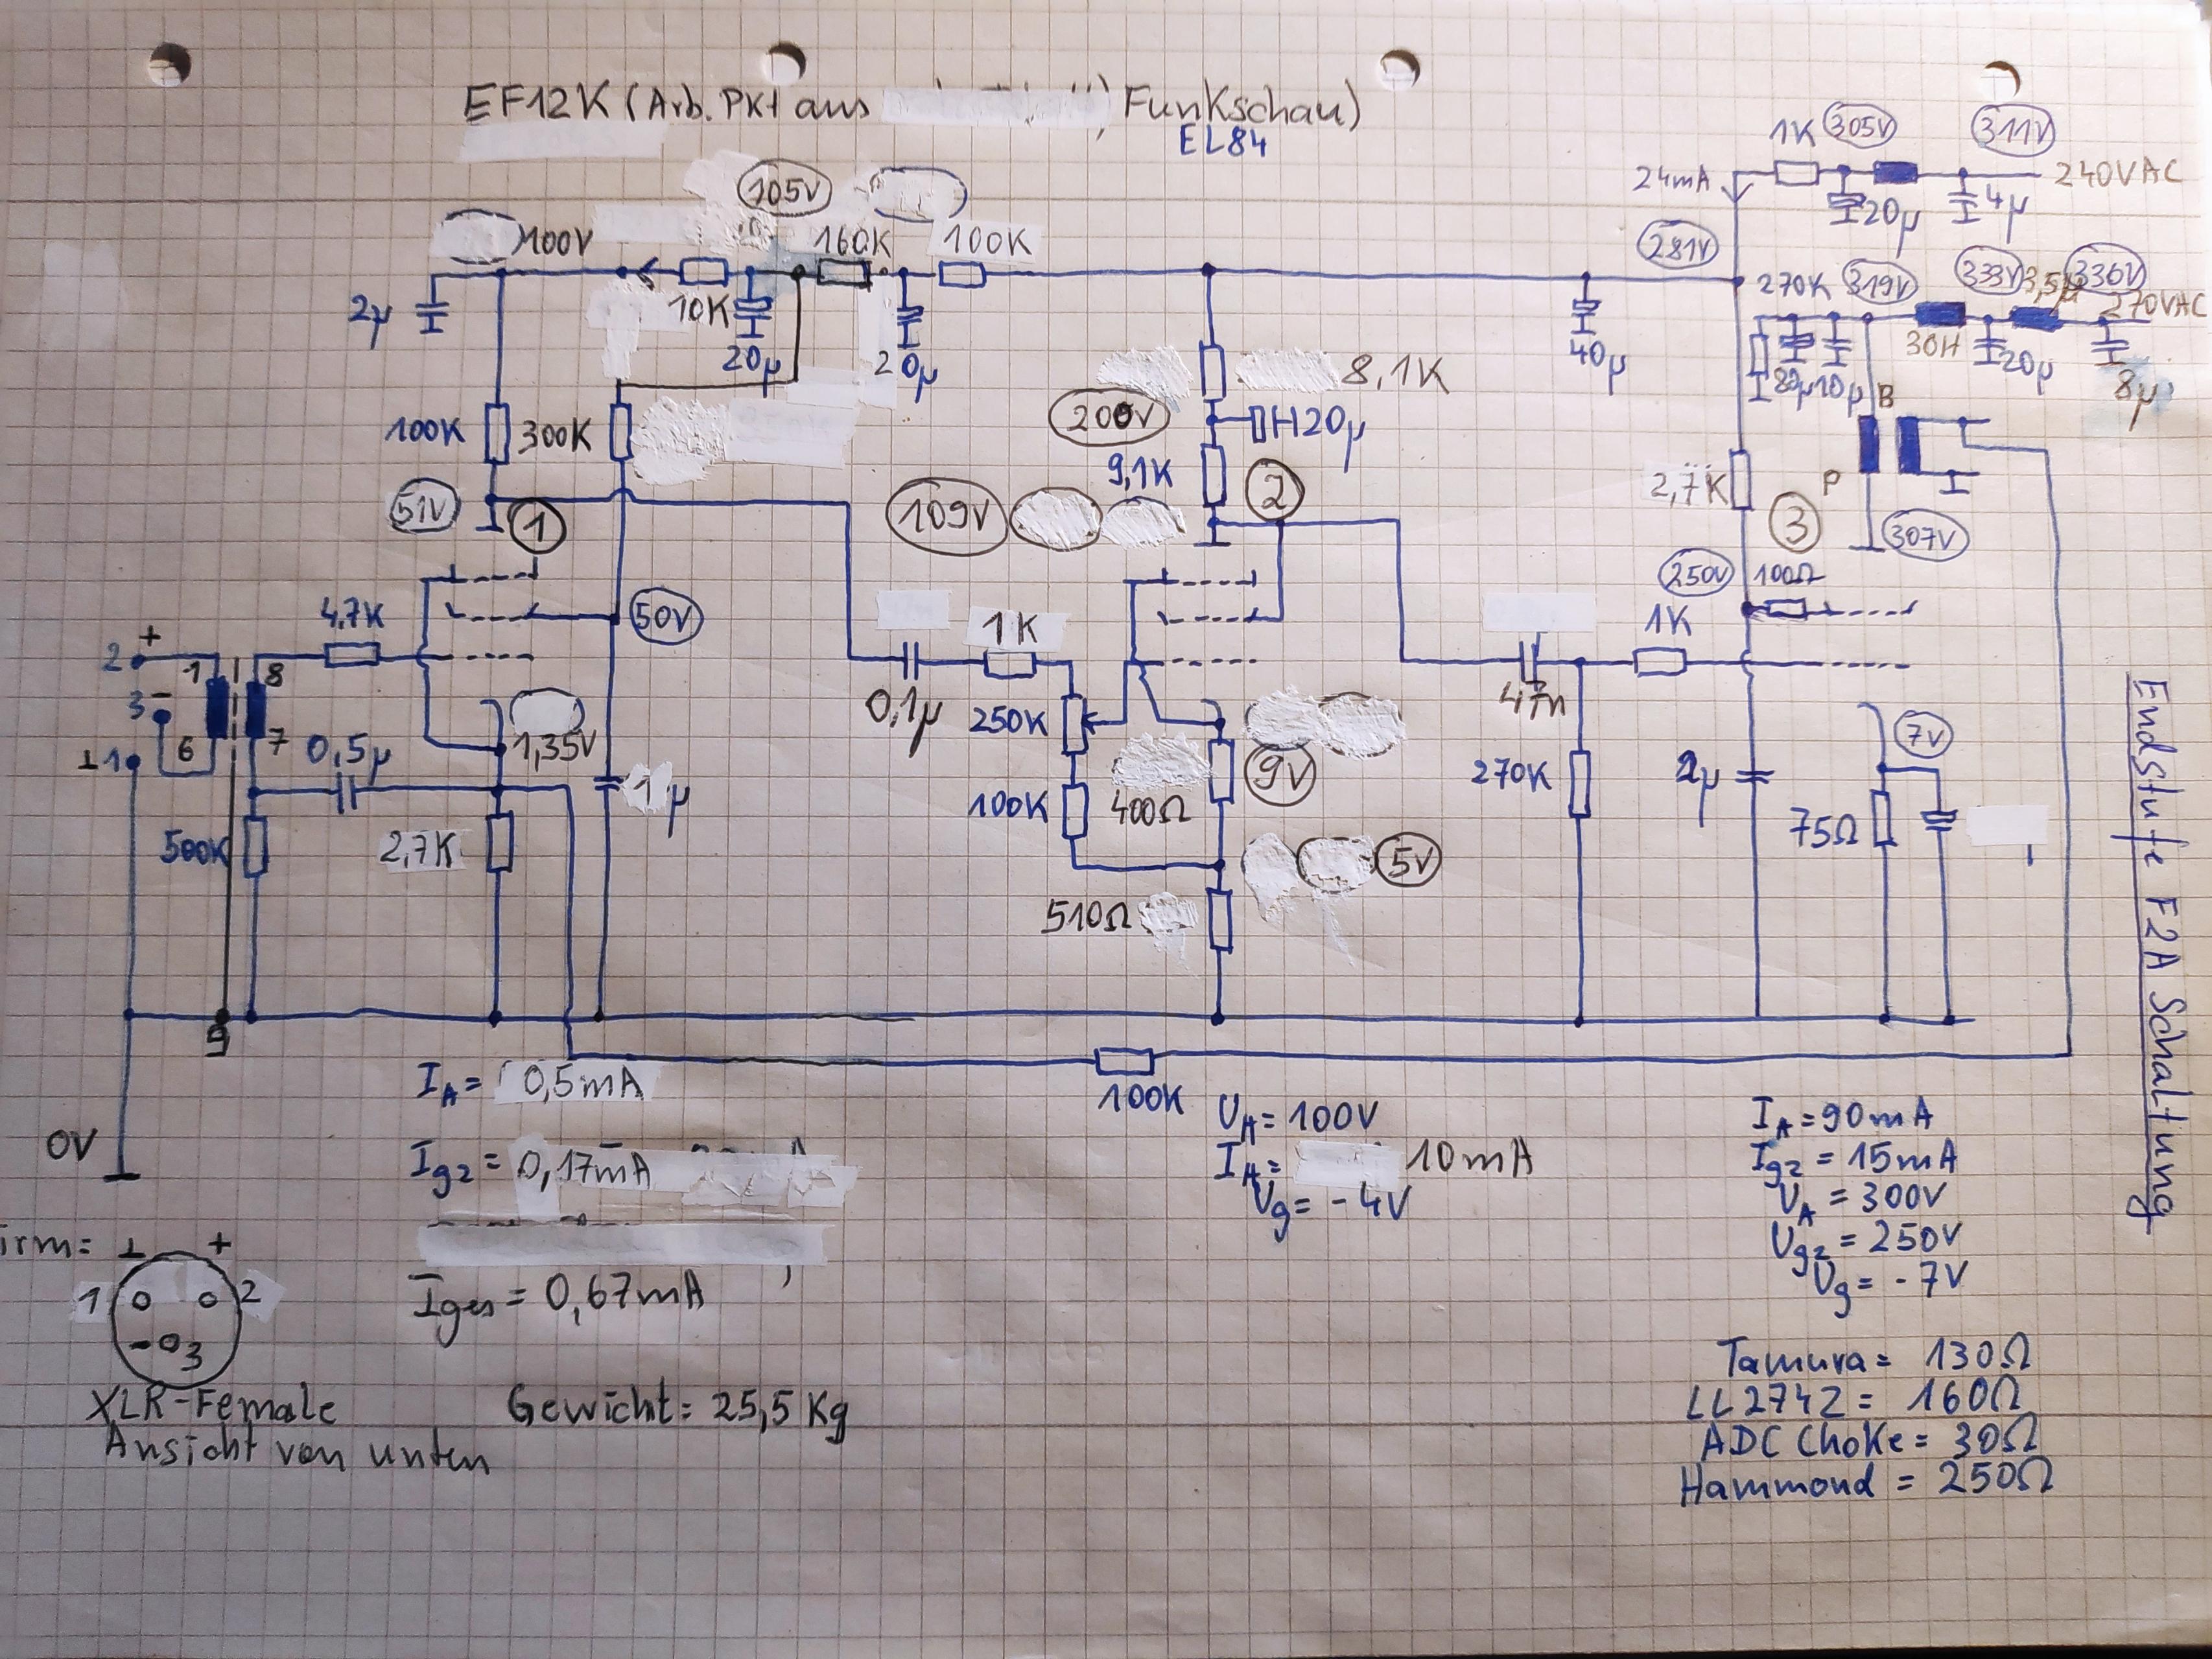 EF12K (Arb. Pkt aus Funkschau)
EL84
1K 305V 311V
24mA 240VAC
20µ 4µ
105V
100V 160K 100K
281V
2µ 10K 20µ 20µ 40µ
270K 319V 333V 336V
270VAC
30H 20µ 8µ
10µ
8,1K
100K 300K
200V 20µ
B
9,1K
51V 1 109V 2
2,7K P
3 307V
250V 100Ω
50V
4,7K 1K 1K
2 + 1 8
3 - 6 7
⊥1
0,5µ 1,35V
0,1µ 250K 47n
9V 7V
1µ 100K 400Ω 270K 2µ 75Ω
500K 2,7K
5V
510Ω
9
100K
Endstufe F2A Schaltung
0V
IA= 0,5mA
Ig2= 0,17mA
Iges = 0,67mA
UA= 100V
IA= 10mA
Ug= -4V
IA=90mA
Ig2 = 15mA
UA = 300V
Ug2 = 250V
Ug = -7V
irm= ⊥ +
1 2
- 3
XLR-Female
Ansicht von unten
Gewicht: 25,5 Kg
Tamura = 130Ω
LL2742 = 160Ω
ADC Choke = 30Ω
Hammond = 250Ω